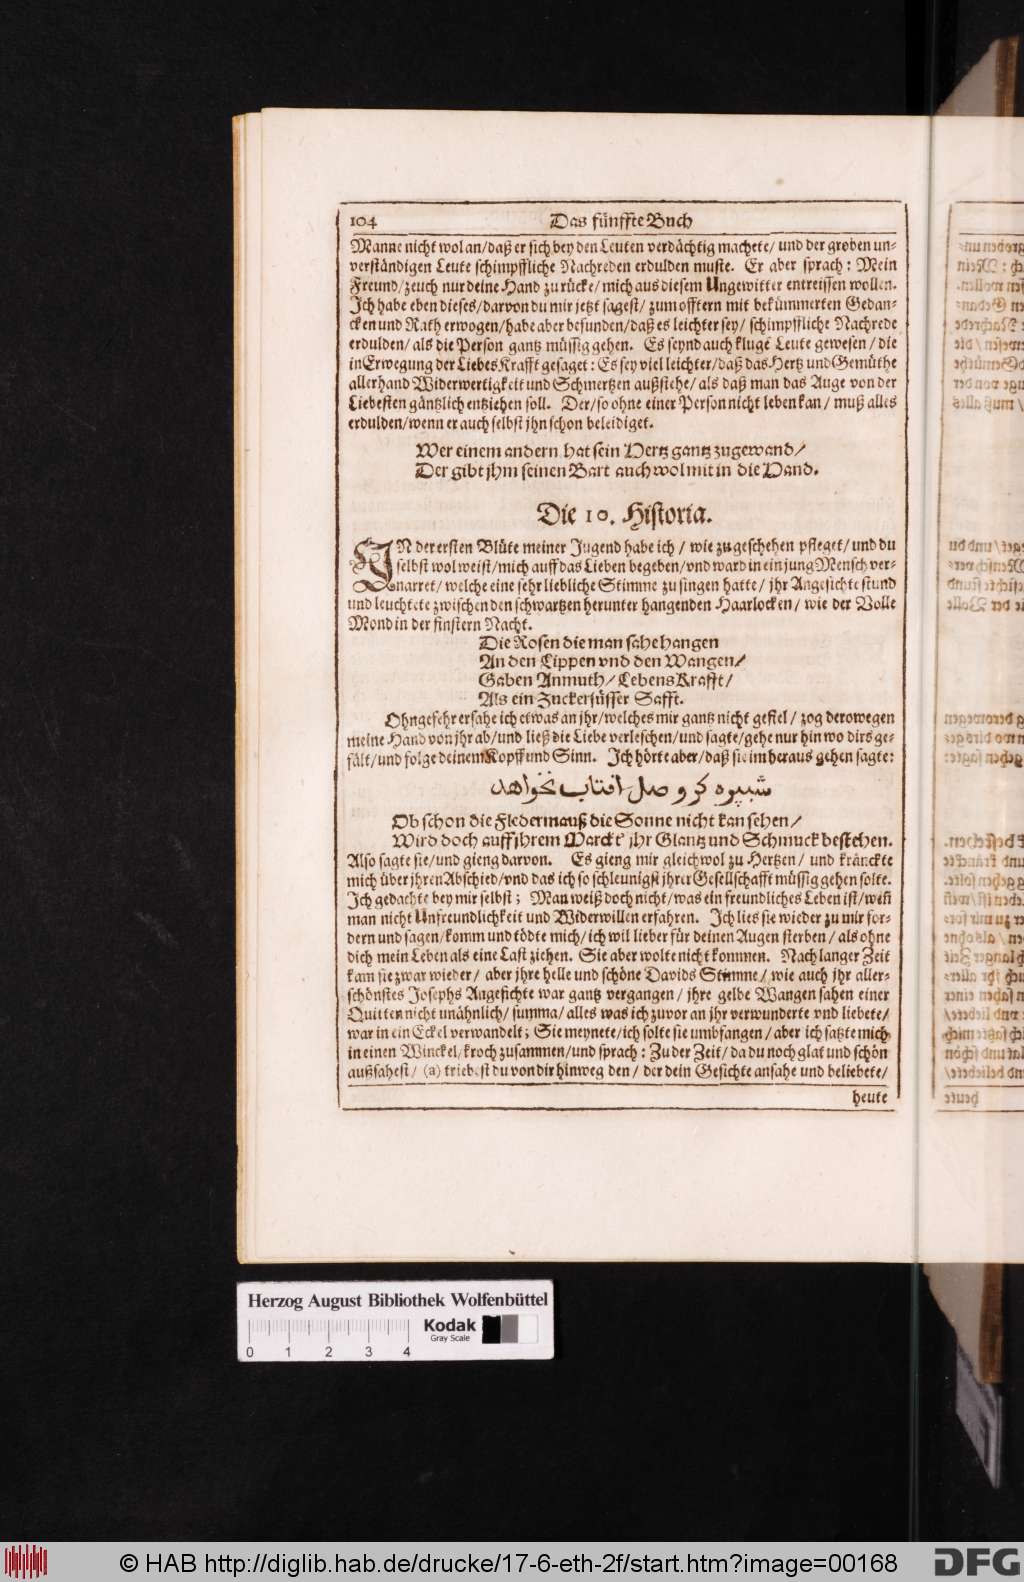 104 Das fünffte Buch
Manne nicht wol an/ daß er sich bey den Leuten verdächtig machete/ und der groben un-
verständigen Leute schimpffliche Nachreden erdulden muste. Er aber sprach: Mein
Freund/ zeuch nur deine Hand zu rücke/ mich aus diesem Ungewitter entreissen wollen.
Ich habe eben dieses/ davon du mir jetzt sagest/ zum offtern mit bekümmerten Gedan-
cken und Rath erwogen/ habe aber befunden/ daß es leichter sey/ schimpffliche Nachrede
erdulden/ als die Person gantz müssig gehen. Es seynd auch kluge Leute gewesen/ die
in Erwegung der Liebes Krafft gesaget: Es sey viel leichter/ daß das Hertz und Gemüthe
allerhand Widerwertigkeit und Schmertzen außstehe/ als daß man das Auge von der
Liebesten gäntzlich entziehen soll. Der/ so ohne einer Person nicht leben kan/ muß alles
erdulden/ wenn er auch selbst jhn schon beleidiget.
Wer einem andern hat sein Hertz gantz zugewand/
Der gibt jhm seinen Bart auch wol mit in die Hand.
Die 10. Historia.
IN der ersten Blüte meiner Jugend habe ich/ wie zu geschehen pfleget/ und du
selbst wol weist/ mich auff das Lieben begeben/ vnd ward in ein jung Mensch ver-
narret/ welche eine sehr liebliche Stimme zu singen hatte/ jhr Angesichte stund
und leuchtete zwischen den schwartzen herunter hangenden Haarlocken/ wie der Volle
Mond in der finstern Nacht.
Die Rosen die man sahe hangen
An den Lippen vnd den Wangen/
Gaben Anmuth/ Lebens Krafft/
Als ein Zuckersüsser Safft.
Ohngefehr ersahe ich etwas an jhr/ welches mir gantz nicht gefiel/ zog derowegen
meine Hand von jhr ab/ und ließ die Liebe verleschen/ und sagte/ gehe nur hin wo dirs ge-
fält/ und folge deinem Kopff und Sinn. Ich hörte aber/ daß sie im heraus gehen sagte:
شبپره گر وصل افتاب نخواهد
Ob schon die Fledermauß die Sonne nicht kan sehen/
Wird doch auff jhrem Marckt jhr Glantz und Schmuck bestehen.
Also sagte sie/ und gieng davon. Es gieng mir gleichwol zu Hertzen/ und kränckte
mich über jhren Abschied/ vnd das ich so schleunigst jhrer Gesellschafft müssig gehen solte.
Ich gedachte bey mir selbst; Man weiß doch nicht/ was ein freundliches Leben ist/ weñ
man nicht Unfreundlichkeit und Widerwillen erfahren. Ich lies sie wieder zu mir for-
dern und sagen/ komm und tödte mich/ ich wil lieber für deinen Augen sterben/ als ohne
dich mein Leben als eine Last ziehen. Sie aber wolte nicht kommen. Nach langer Zeit
kam sie zwar wieder/ aber jhre helle und schöne Davids Stimme/ wie auch jhr aller-
schönstes Josephs Angesichte war gantz vergangen/ jhre gelbe Wangen sahen einer
Quitten nicht unähnlich/ summa/ alles was ich zuvor an jhr verwunderte vnd liebete/
war in ein Eckel verwandelt; Sie meynete/ ich solte sie umbfangen/ aber ich satzte mich
in einen Winckel/ kroch zusammen/ und sprach: Zu der Zeit/ da du noch glat und schön
außsahest/ (a) triebest du von dir hinweg den/ der dein Gesichte ansahe und beliebete/
heute
Herzog August Bibliothek Wolfenbüttel
Kodak
Gray Scale
0 1 2 3 4
© HAB http://diglib.hab.de/drucke/17-6-eth-2f/start.htm?image=00168
DFG